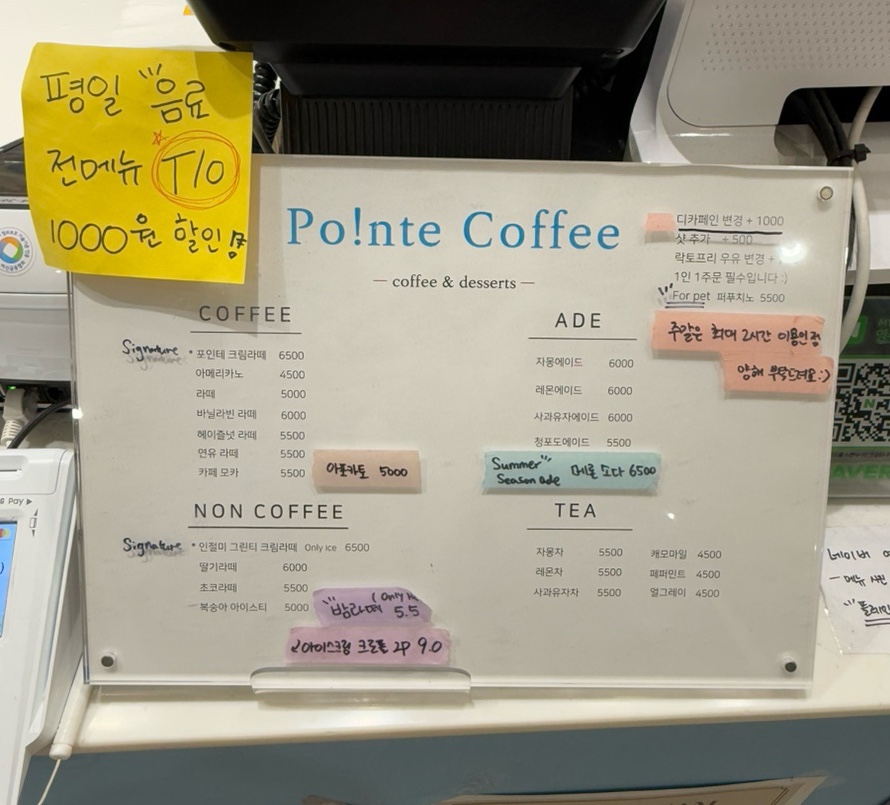 평일 음료
전메뉴 T/O
1000원 할인
Po!nte Coffee
— coffee & desserts —
디카페인 변경 + 1000
샷 추가 + 500
락토프리 우유 변경 +
1인 1주문 필수입니다 :)
For pet 퍼푸치노 5500
주말은 최대 2시간 이용인점
양해 부탁드려요 :)
COFFEE
Signature • 포인테 크림라떼 6500
아메리카노 4500
라떼 5000
바닐라빈 라떼 6000
헤이즐넛 라떼 5500
연유 라떼 5500
카페 모카 5500
아포카토 5000
ADE
자몽에이드 6000
레몬에이드 6000
사과유자에이드 6000
청포도에이드 5500
Summer Season ade 메론 소다 6500
NON COFFEE
Signature • 인절미 그린티 크림라떼 Only ice 6500
딸기라떼 6000
초코라떼 5500
복숭아 아이스티 5000
(Only
밤라떼 5.5
아이스크림 크로플 2P 9.0
TEA
자몽차 5500
레몬차 5500
사과유자차 5500
캐모마일 4500
페퍼민트 4500
얼그레이 4500
Pay
네이버
- 메뉴 사진